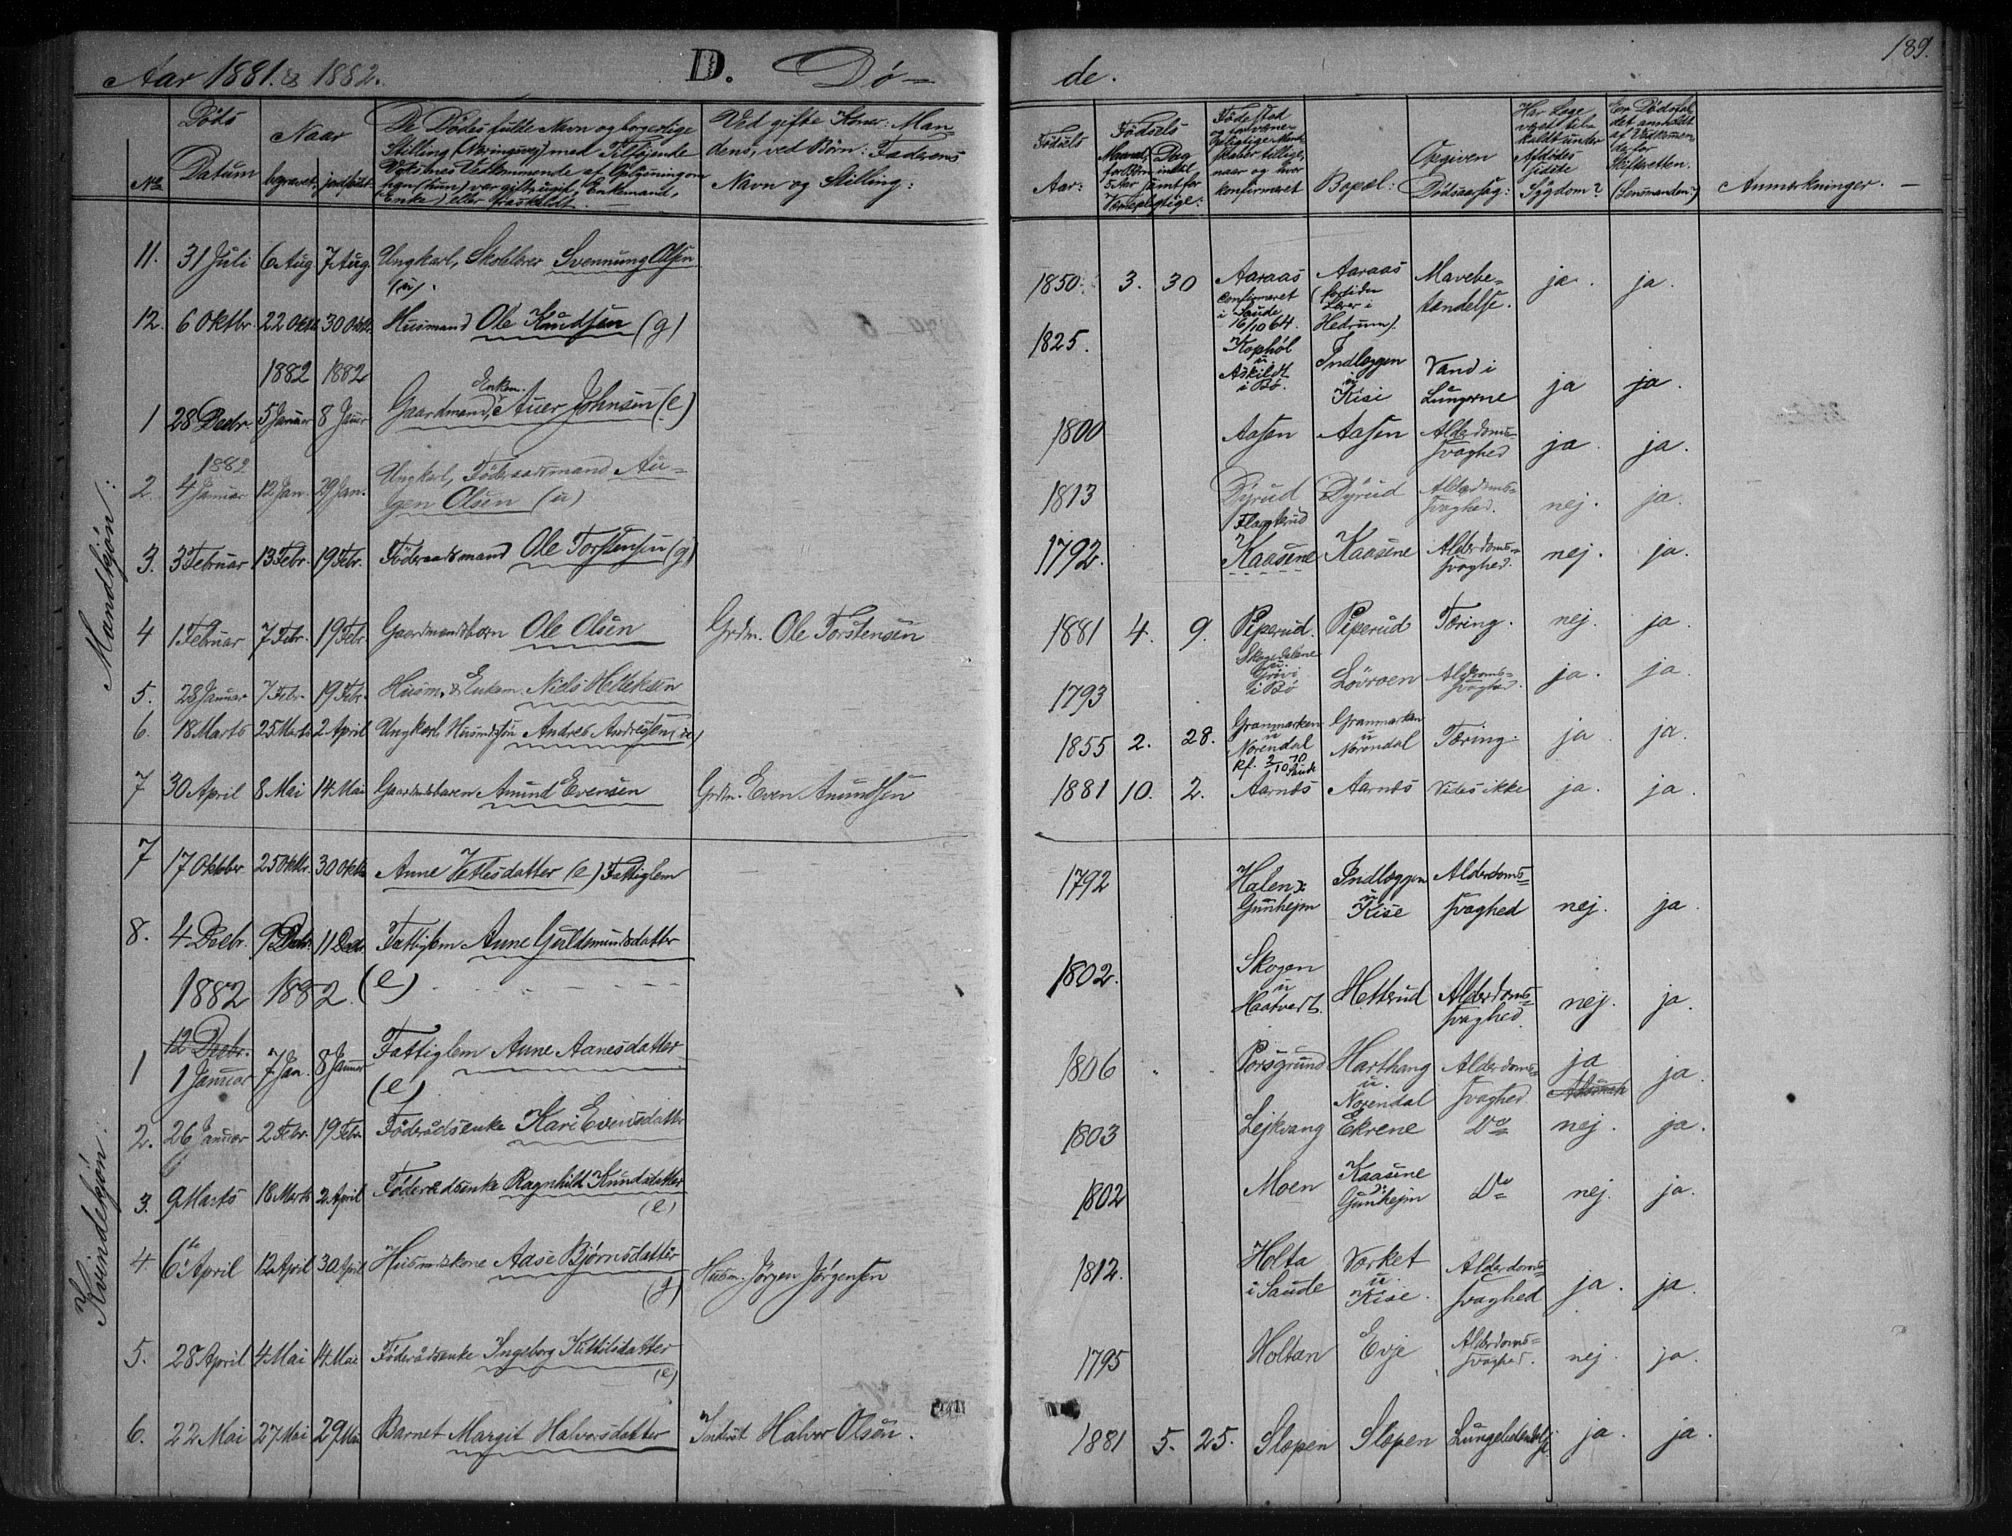 Aar 1881 & 1882.
D. Dø-
de.
189.
No
Døds
Datum
Naar
begravet
jordfæst
De Dødes fulde Navn og borgerlige
Stilling (Næringsvej) med Tilføjende
Ved gifte Koner: Man-
dens, ved Børn: Faderens
Navn og Stilling:
Fødsels
Aar:
Fødsels
Maaned,
Dag
Fødestad
naar og hvor
konfirmeret
Bopæl:
Opgiven
Dødsaarsag:
Har Læge
været til-
kaldt under
Afdødes
sidste
Sygdom?
Er Dødsfal-
det anmeldt
af Vedkommen-
de for
Skifteretten.
(Lensmanden:)
Anmærkninger. —
Mandkjøn:
11. 31 Juli 6 Aug 7 Aug. Ungkarl, Skolelærer Svennung Olsen (u). 1850. 3. 30 Aaraas confirmeret i Saude 16/10 64. Aaraas (forhiden Lærer i Hedrum). Mavebe-tændelse. ja. ja.
12. 6 Oktbr. 22 Oktb. 30 Oktb. Husmand Ole Knudsen (g) 1825. Kophøl u Askildt i Bø. Indlæggen u Kise Vand i Lungerne ja ja.
1882 1882
1 28 Decbr. 5 Januar 8 Januar Gaardmand, Enkem. Auer Johnsen (e) 1800 Aasen Aasen Alderdoms-svaghed ja. ja.
1882
2. 4 Januar 12 Jan. 29 Jan. Ungkarl, Föderaadsmand Au-gen Olsen (u) 1813 Dyrud Dyrud Alderdoms-svaghed. nej. ja.
3. 3 Februar 13 Febr. 19 Febr. Föderaadsmand Ole Torstensen (g) 1792. Flagterud Kaasene Kaasene Alderdoms-svaghed. nej. ja.
4 1 Februar 7 Febr. 19 Febr. Gaardmandsbørn Ole Olsen Grdm. Ole Torstensen 1881 4. 9. Piperud. Piperud Tæring. nej. ja.
5. 28 Januar 7 Febr. 19 Febr. Husm. & Enkem. Niels Helleksen 1793 Skogedalene u. Grivi i Bø Lövroen Alderdoms-svaghed. ja. ja
6. 18 Marts 25 Marts 2 April Ungkarl Husmdssøn Andres Andresen (u) 1855 2. 28. Granmarken u Norendal kf. 2/10 70 Saude Granmarken u Norendal Tæring. ja ja.
7 30 April 8 Mai 14 Mai Gaardmdsbaren Amund Evensen Grdm. Even Amundsen 1881 10. 2. Aarnæs Aarnæs Vides ikke ja. ja.
Kvindekjøn:
7 17 Oktober 25 Oktbr. 30 Oktb. Anne Vetlesdatter (e) Fattiglem 1792 Halen x Gunhejm Indlæggen u Kise Alderdoms-svaghed nej. ja.
8. 4 Decbr. 9 Decbr. 11 Decb. Fattiglem Anne Guldmundsdatter (e) 1802. Skogen u Haatvert. Hetterud Alderdoms-svaghed. nej. ja.
1882 1882.
1 12 Decbr. 1 Januar 7 Jan. 8 Januar Fattiglem Anne Aanesdatter (e) 1806 Porsgrund Harthang u. Norendal Alderdoms-svaghed ja ja.
2. 26 Januar 2 Febr. 19 Febr. Föderådsenke Kari Evensdatter 1803 Lejkvang Ekrene Do nej. ja.
3. 9 Marts 18 Marts 2 April Föderadsenke Ragnhild Knudsdatter (e) 1802 Moen Kaasene Gunhejm Do nej. ja.
4 6te April 12 April 30 April Husmdskone Aase Bjørnsdatter (g) Husm. Jörgen Jörgensen 1812. Holta i Saude Værket u. Kise. Alderdoms-svaghed ja. ja.
5. 28 April 4 Mai 14 Mai Föderådsenke Ingeborg Kittilsdatter (e) 1795 Holtan Evje Alderdoms-svaghed. nej. ja.
6. 22 Mai 27 Mai 29 Mai Barnet Margit Halvorsdatter Inderst Halvor Olsen. 1881 5. 25. Slæpen Slæpen Lungebetændelse ja. ja.